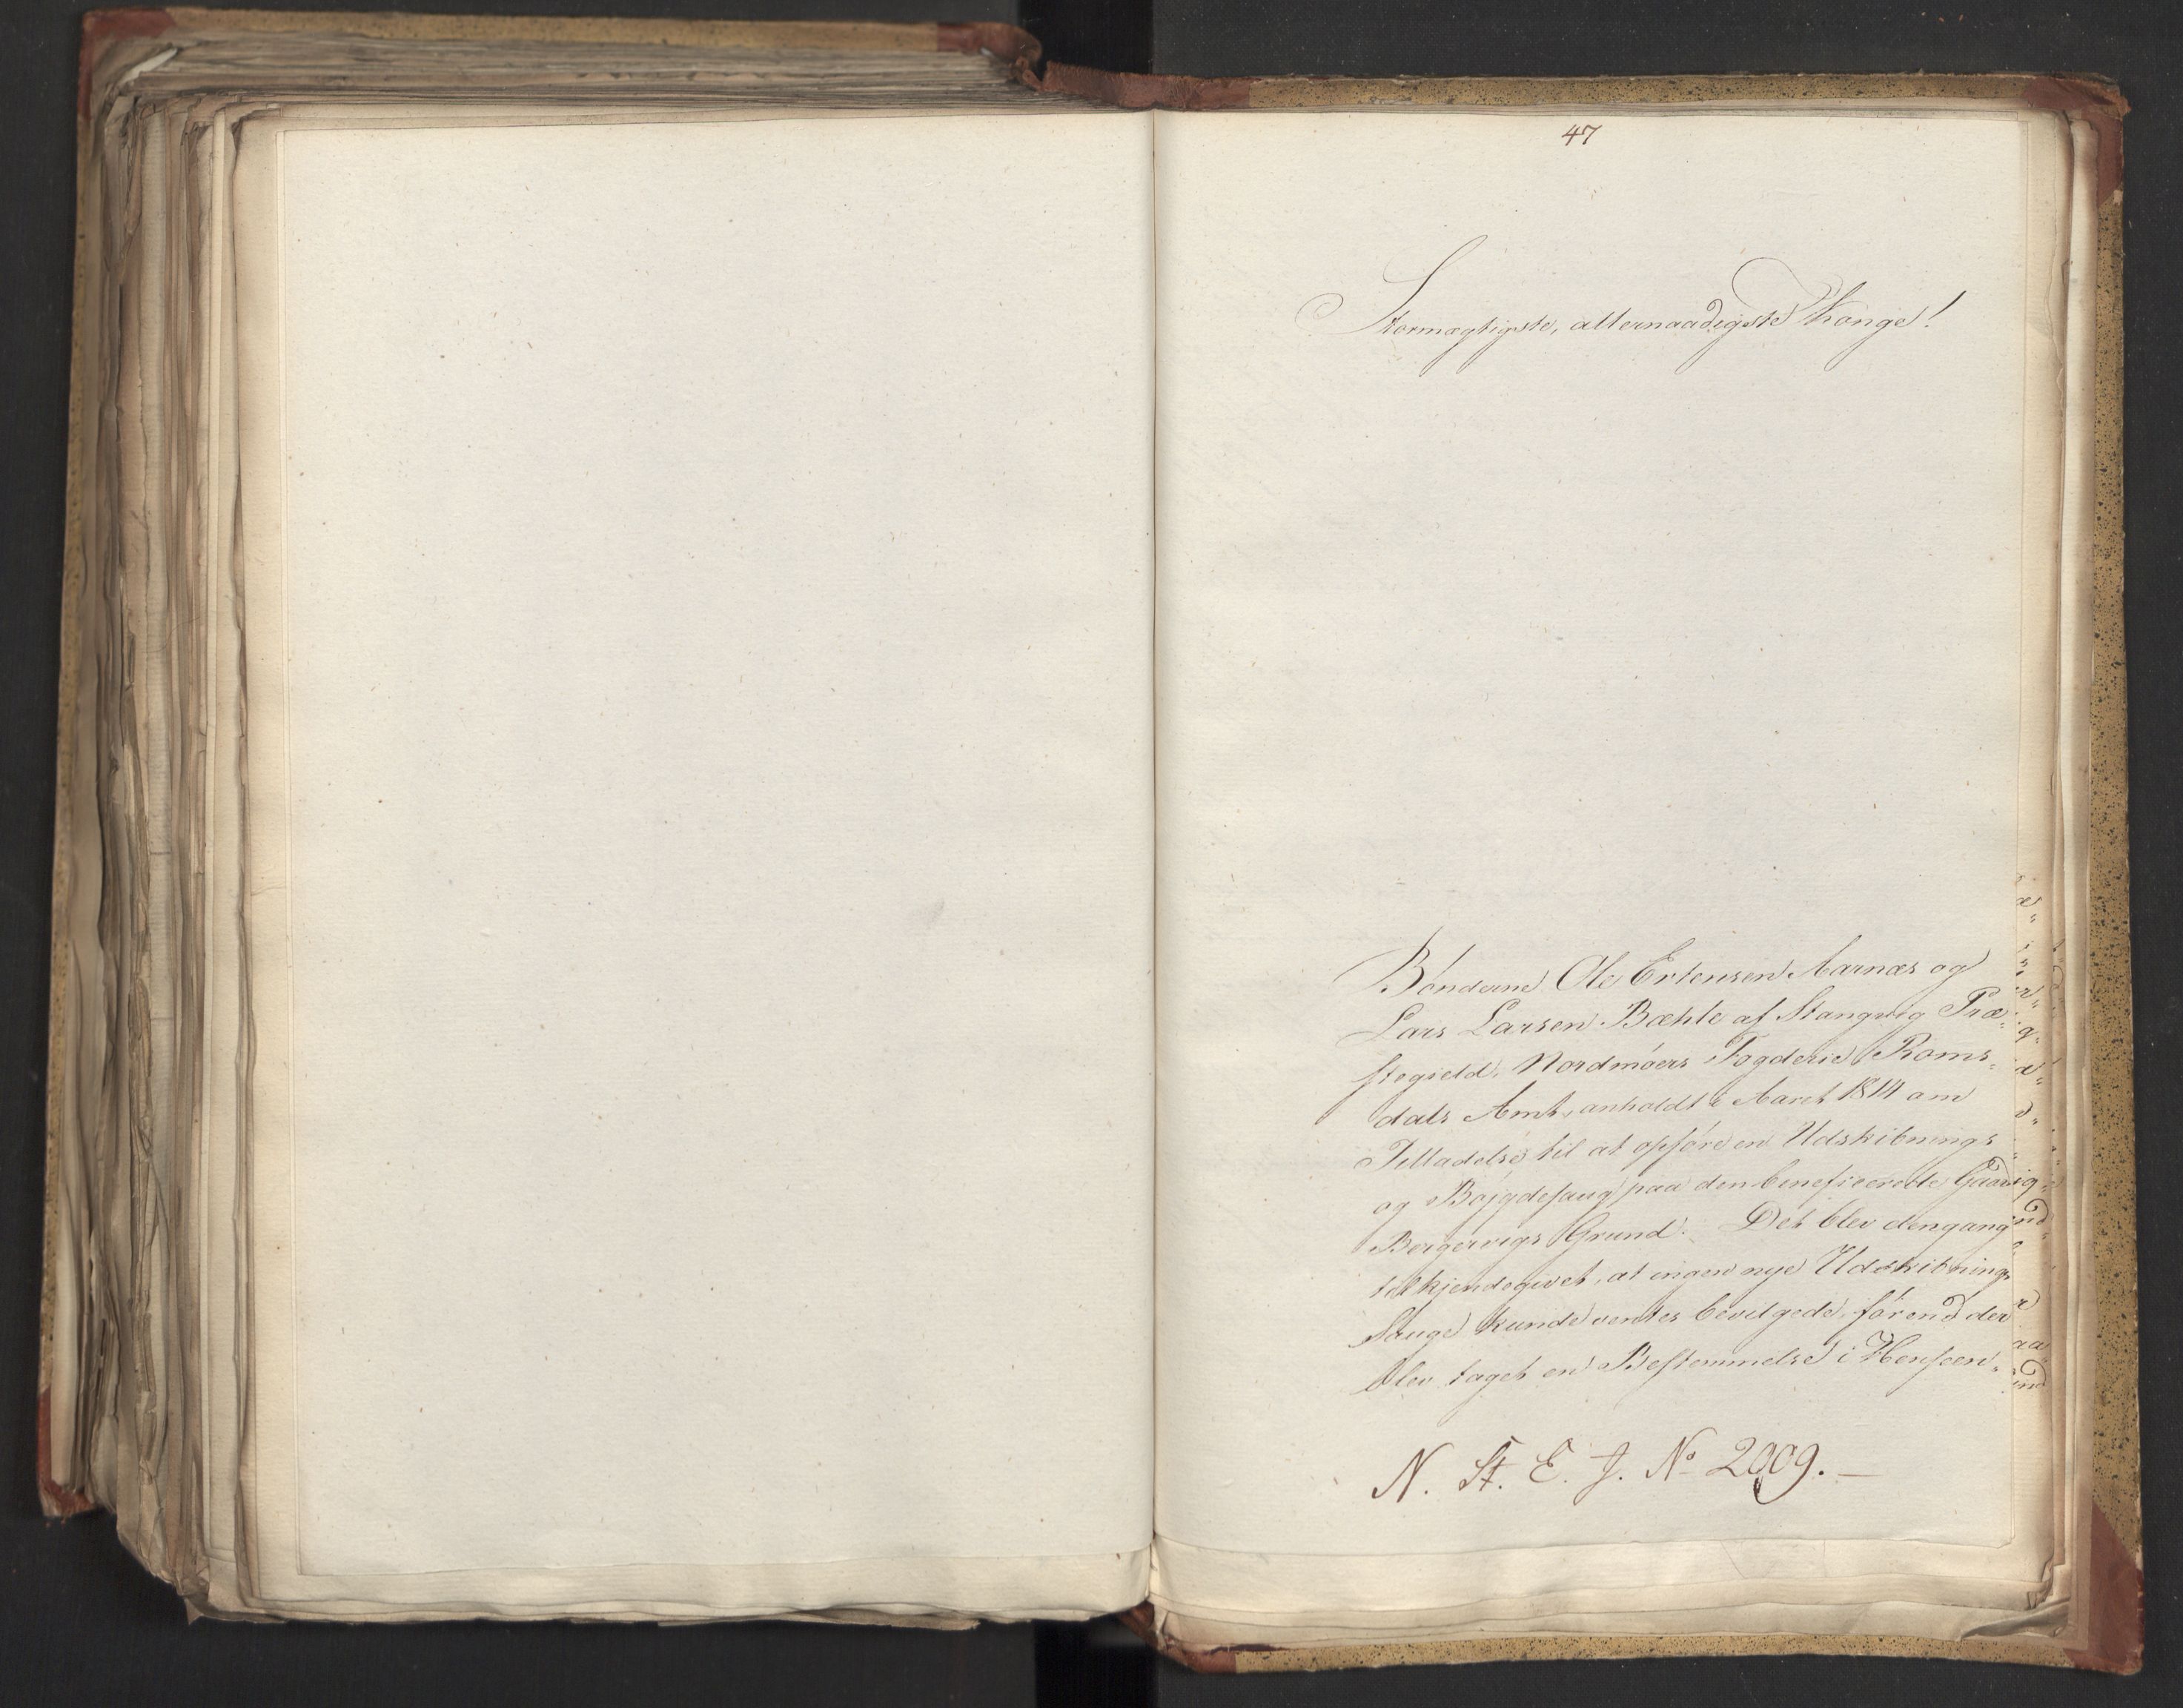 47
Stormægtigste, allernaadigste Konge!
Bönderne Ole Ertensen Aarnæs og
Lars Larsen Bæhle af Stangvig Præ-
stegield, Nordmöers Fogderie, Roms-
dals Amt, anholdt i Aaret 1814 om
Tilladelse til at opföre en Udskibnings
og Böjgdesaug paa den beneficerede Gaard
Bergervigs Grund. Det blev dengang
tilkjendegivet, at ingen nye Udskibnings
Sauge kunde ventes bevilgede, förend der
blev taget en Bestemmelse i Henseen-
N. St. E. J. No 2009. —